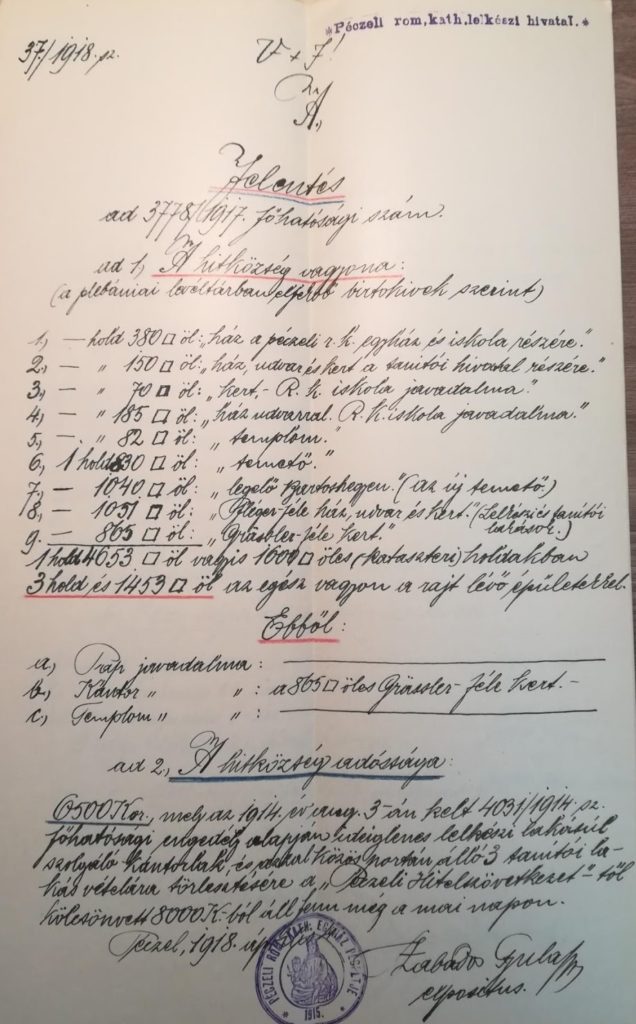 *Péczeli rom,kath,lelkészi hivatal.*
37./1918. sz.
V + J!
Jelentés
ad 3778/1917. főhatósági szám.
ad 1, A hitközség vagyona:
(a plébániai levéltárban elfekvő birtokívek szerint)
1, — hold 380 □ öl: „ház a péczeli r. k. egyház és iskola részére."
2., — " 150 □ öl: „ház, udvar és kert a tanítói hivatal részére."
3., — " 70 □ öl: „kert,- R. k. iskola javadalma."
4., — " 185 □ öl: „ház udvarral. R. k. iskola javadalma."
5., — " 82 □ öl: „templom."
6., 1 hold 830 □ öl: „temető."
7., — 1040 □ öl: „legelő Bartoshegyen." (Az új temető.)
8., — 1051 □ öl: „Pléger-féle ház, udvar és kert." (Lelkészi és tanítói lakások.)
9. — 865 □ öl: „Grässler-féle kert."
1 hold 4653 □ öl vagyis 1600 □ öles (kataszteri) holdakban
3 hold és 1453 □ öl az egész vagyon a rajt lévő épületekkel.
Ebből:
a., Pap javadalma:
b., Kántor " " : a 865 □ öles Grässler-féle kert.-
c., Templom " " :
ad 2., A hitközség adóssága:
6500 Kor., mely az 1914. év aug. 3-án kelt 4031/1914. sz.
főhatósági engedély alapján ideiglenes lelkészi lakásúl
szolgáló kántorlak, és azzal közös portán álló 3 tanítói la-
kás vételára törlesztésére a „Péczeli Hitelszövetkezet"-től
kölcsönvett 8000 K.-ból áll fenn még a mai napon.
Péczel, 1918.
Szabados Gyula
expositus.
PÉCZELI ROM. KATH. EGYHÁZ PECSÉTJE
1915.